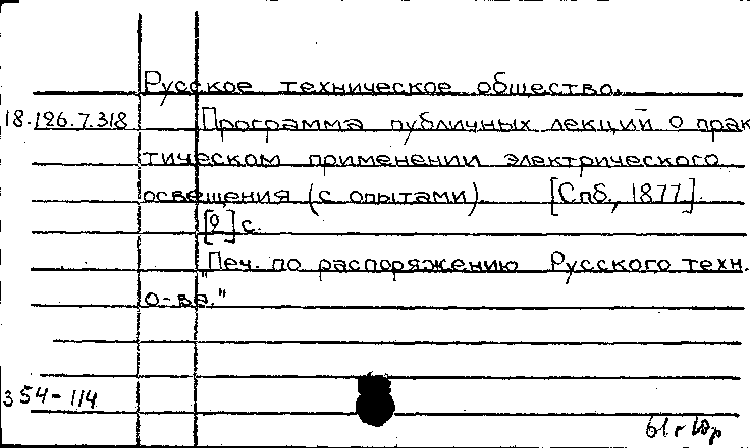 Русское техническое общество.
18.126.7.318 Программа публичных лекций о прак
тическом применении электрического
освещения (с опытами). [Спб., 1877].
[2] с.
"Печ. по распоряжению Русского техн.
о-ва."
354-114